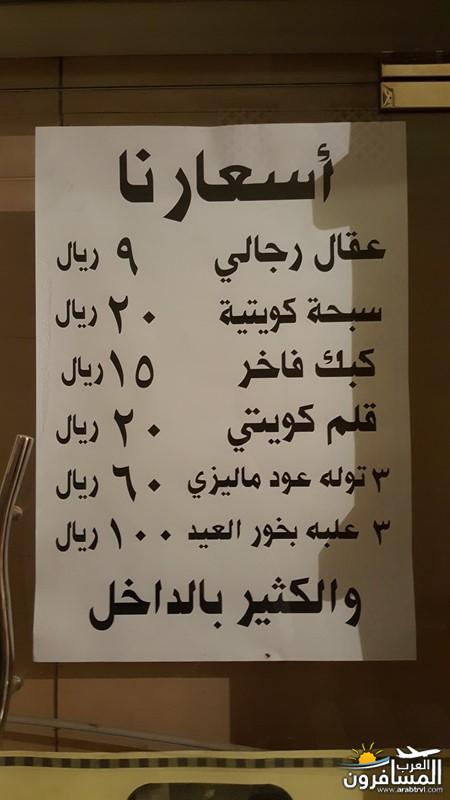 أسعارنا
عقال رجالي ٩ ريال
سبحة كويتية ٢٠ ريال
كبك فاخر ١٥ ريال
قلم كويتي ٢٠ ريال
٣ توله عود ماليزي ٦٠ ريال
٣ علبه بخور العيد ١٠٠ ريال
والكثير بالداخل
العرب
المسافرون
www.arabtrvl.com